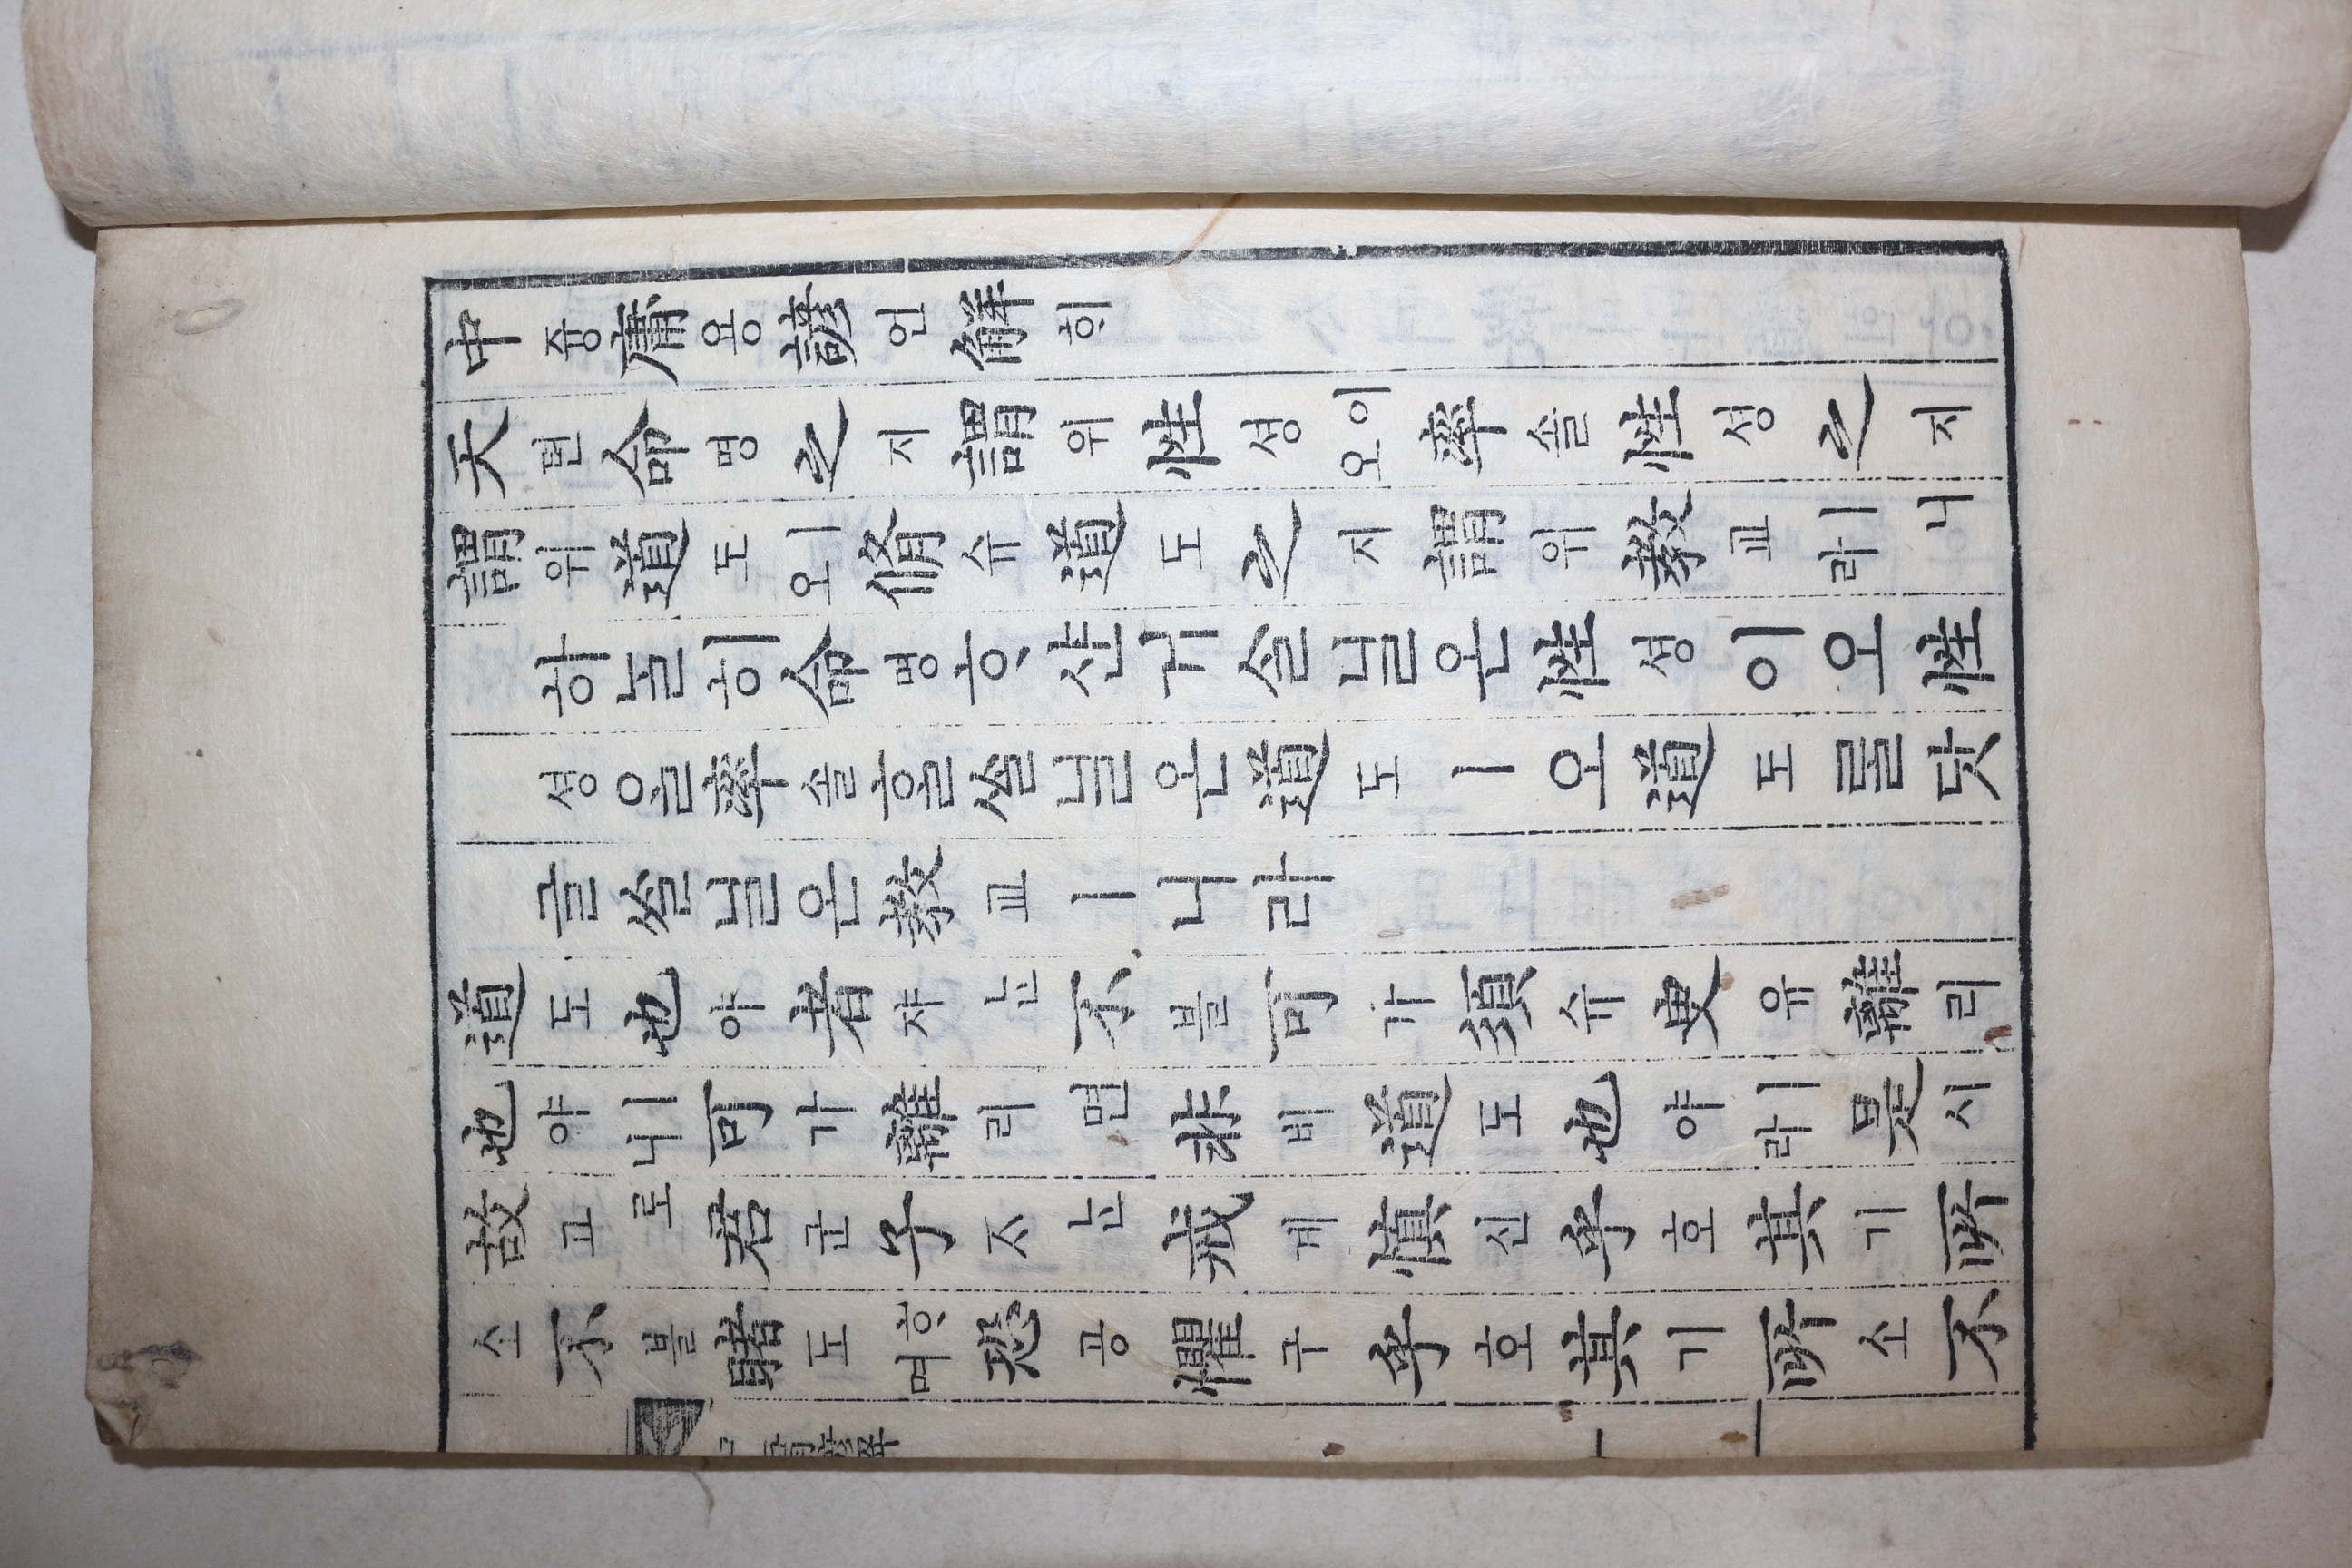 中즁庸용諺언解ᄒᆡ
天텬命명之지謂위性셩이오率솔性셩之지
謂위道도ㅣ오脩슈道도之지謂위敎교ㅣ니라
하ᄂᆞᆯ히命명ᄒᆞ샨거슬닐온性셩이오性
셩을率솔ᄒᆞᆯᄊᆞᆯ닐온道도ㅣ오道도ᄅᆞᆯ닷
글ᄊᆞᆯ닐온敎교ㅣ니라
道도也야者쟈ᄂᆞᆫ不블可가須슈臾유離리
也야ㅣ니可가離리면非비道도也야ㅣ라是시
故고로君군子ᄌᆞᄂᆞᆫ戒계愼신乎호其기所
소不블睹도ᄒᆞ며恐공懼구乎호其기所소不